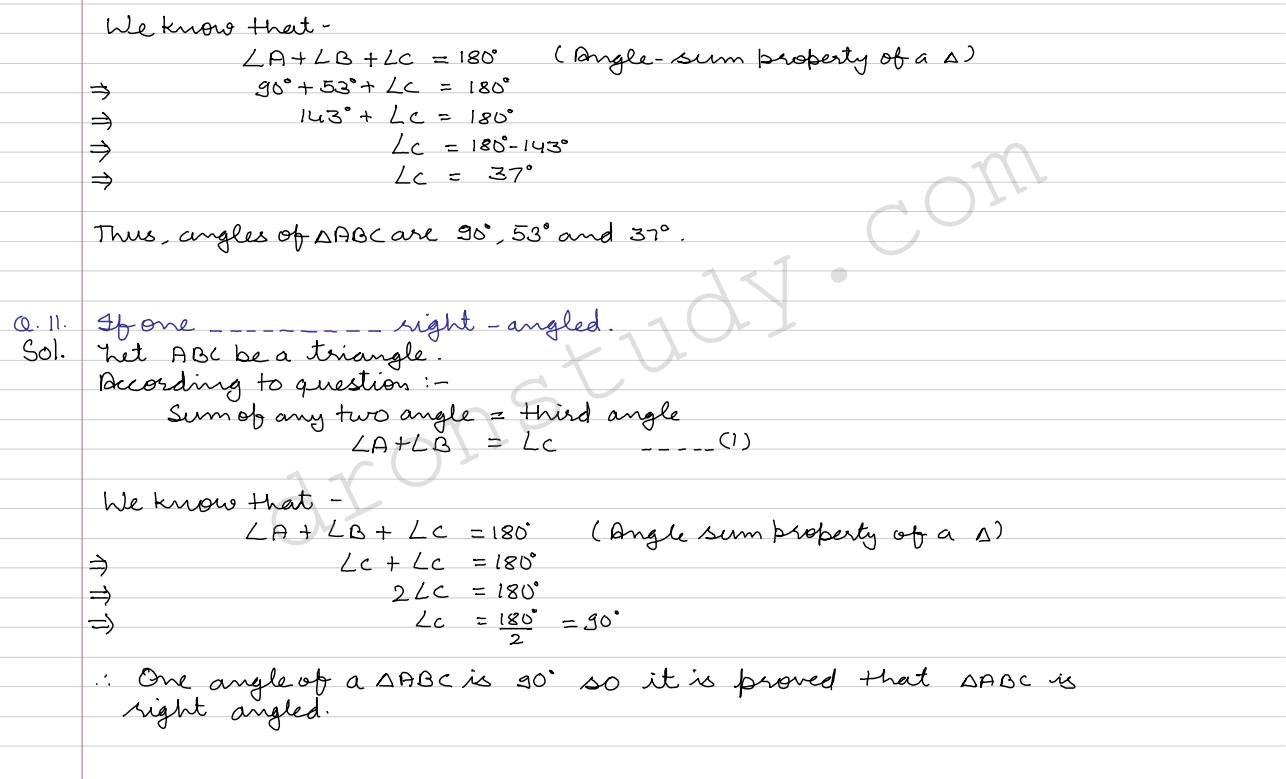 We know that -
∠A + ∠B + ∠C = 180° (Angle-sum property of a Δ)
⇒ 90° + 53° + ∠C = 180°
⇒ 143° + ∠C = 180°
⇒ ∠C = 180° - 143°
⇒ ∠C = 37°
Thus, angles of ΔABC are 90°, 53° and 37°.
Q. 11. If one _ _ _ _ _ _ _ _ _ right-angled.
Sol. Let ABC be a triangle.
According to question :-
Sum of any two angle = third angle
∠A + ∠B = ∠C _ _ _ _ _ (1)
We know that -
∠A + ∠B + ∠C = 180° (Angle sum property of a Δ)
⇒ ∠C + ∠C = 180°
⇒ 2∠C = 180°
⇒ ∠C = 180°/2 = 90°
∴ One angle of a ΔABC is 90° so it is proved that ΔABC is
right angled.
dronstudy.com